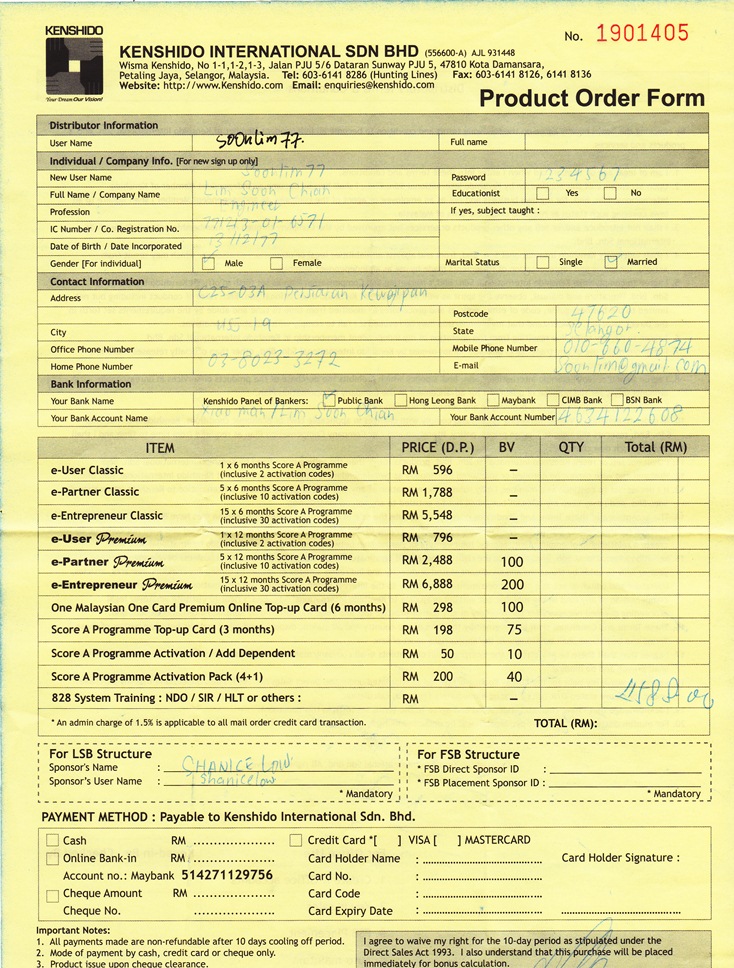 KENSHIDO
Your Dream Our Vision!
No. 1901405
KENSHIDO INTERNATIONAL SDN BHD (556600-A) AJL 931448
Wisma Kenshido, No 1-1,1-2,1-3, Jalan PJU 5/6 Dataran Sunway PJU 5, 47810 Kota Damansara,
Petaling Jaya, Selangor, Malaysia. Tel: 603-6141 8286 (Hunting Lines) Fax: 603-6141 8126, 6141 8136
Website: http://www.Kenshido.com Email: enquiries@kenshido.com
Product Order Form
Distributor Information
User Name Soonlim77. Full name
Individual / Company Info. [For new sign up only]
New User Name Soonlim77 Password 1234567
Full Name / Company Name Lim Soon Chian Educationist Yes No
Profession Engineer If yes, subject taught :
IC Number / Co. Registration No. 771213-01-6571
Date of Birth / Date Incorporated 13/12/77
Gender [For individual] Male Female Marital Status Single Married
Contact Information
Address C25-03A Persiaran Kewajipan
USJ 19 Postcode 47620
City State Selangor.
Office Phone Number Mobile Phone Number 010-860-4874
Home Phone Number 03-8023-3272 E-mail Soonlim@gmail.com
Bank Information
Your Bank Name Kenshido Panel of Bankers: Public Bank Hong Leong Bank Maybank CIMB Bank BSN Bank
Your Bank Account Name Xiao man/Lim Soon Chian Your Bank Account Number 4634122608
ITEM PRICE (D.P.) BV QTY Total (RM)
e-User Classic 1 x 6 months Score A Programme (inclusive 2 activation codes) RM 596 –
e-Partner Classic 5 x 6 months Score A Programme (inclusive 10 activation codes) RM 1,788 –
e-Entrepreneur Classic 15 x 6 months Score A Programme (inclusive 30 activation codes) RM 5,548 –
e-User Premium 1 x 12 months Score A Programme (inclusive 2 activation codes) RM 796 –
e-Partner Premium 5 x 12 months Score A Programme (inclusive 10 activation codes) RM 2,488 100
e-Entrepreneur Premium 15 x 12 months Score A Programme (inclusive 30 activation codes) RM 6,888 200
One Malaysian One Card Premium Online Top-up Card (6 months) RM 298 100
Score A Programme Top-up Card (3 months) RM 198 75
Score A Programme Activation / Add Dependent RM 50 10
Score A Programme Activation Pack (4+1) RM 200 40
828 System Training : NDO / SIR / HLT or others : RM –
* An admin charge of 1.5% is applicable to all mail order credit card transaction. TOTAL (RM):
For LSB Structure
Sponsor's Name : CHANICE LOW
Sponsor's User Name : Shanicelow
* Mandatory
For FSB Structure
* FSB Direct Sponsor ID :
* FSB Placement Sponsor ID :
* Mandatory
PAYMENT METHOD : Payable to Kenshido International Sdn. Bhd.
Cash RM .................... Credit Card *[ ] VISA [ ] MASTERCARD
Online Bank-in RM .................... Card Holder Name : .................... Card Holder Signature :
Account no.: Maybank 514271129756 Card No. : ....................
Cheque Amount RM .................... Card Code : ....................
Cheque No. .................... Card Expiry Date : .................... ....................
Important Notes:
1. All payments made are non-refundable after 10 days cooling off period.
2. Mode of payment by cash, credit card or cheque only.
3. Product issue upon cheque clearance.
I agree to waive my right for the 10-day period as stipulated under the
Direct Sales Act 1993. I also understand that this purchase will be placed
immediately for bonus calculation.